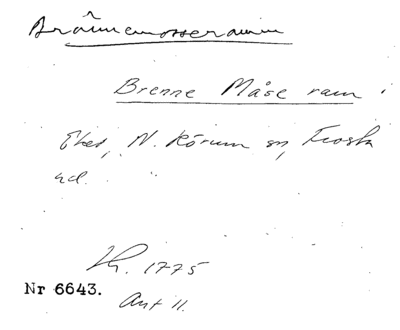 Brännemosseramm
Brenne Måse ram
Eket, N. Rörum sn, Frosta
hd.
Lh. 1775
Nr 6643.
Akt 11.